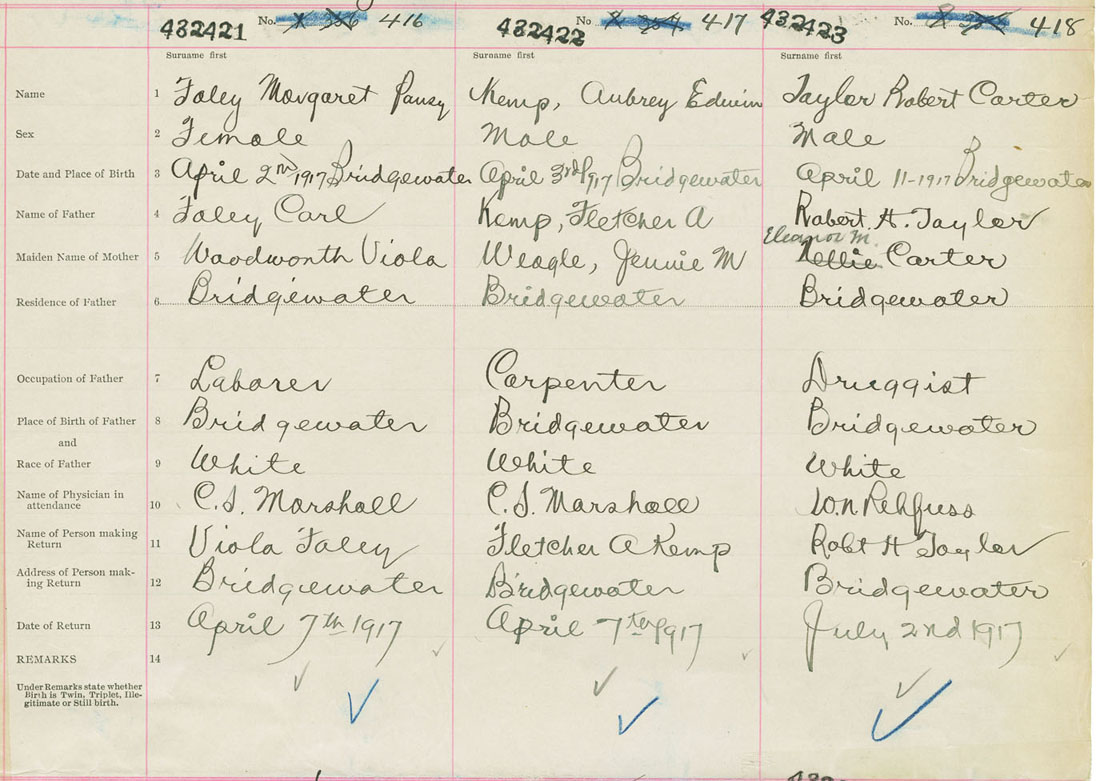 No. 416 No 417 No. 418
432421 432422 432423
Surname first Surname first Surname first
Name 1 Foley Margaret Pansy Kemp, Aubrey Edwin Taylor Robert Carter
Sex 2 Female Male Male
Date and Place of Birth 3 April 2nd, 1917 Bridgewater April 3rd 1917 Bridgewater April 11-1917 Bridgewater
Name of Father 4 Foley Carl Kemp, Fletcher A Robert. H. Taylor
Eleanor M.
Maiden Name of Mother 5 Woodworth Viola Weagle, Jennie M Nellie Carter
Residence of Father 6 Bridgewater Bridgewater Bridgewater
Occupation of Father 7 Laborer Carpenter Druggist
Place of Birth of Father 8 Bridgewater Bridgewater Bridgewater
and
Race of Father 9 White White White
Name of Physician in
attendance 10 C.S. Marshall C.S. Marshall W.N. Rehfuss
Name of Person making
Return 11 Viola Foley Fletcher A Kemp Robt H Taylor
Address of Person mak-
ing Return 12 Bridgewater Bridgewater Bridgewater
Date of Return 13 April 7th 1917 April 7th 1917 July 2nd 1917
REMARKS 14
Under Remarks state whether
Birth is Twin, Triplet, Ille-
gitimate or Still birth.